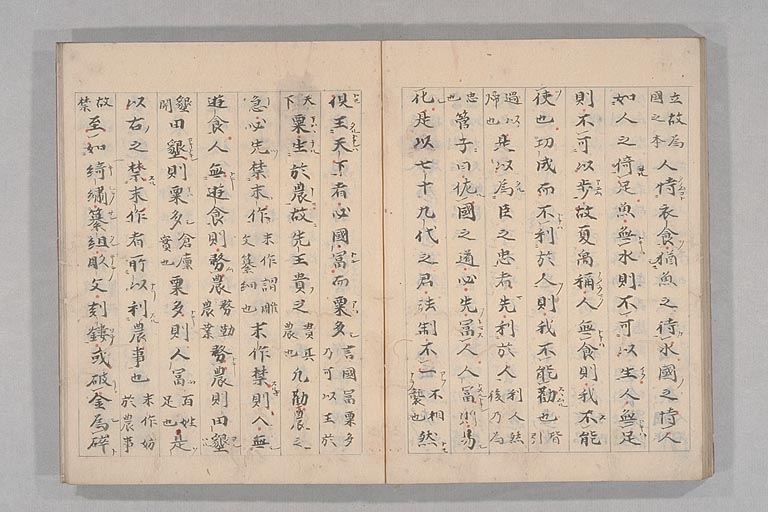 立故為國之本人恃衣食猶魚之待水國之恃人
如人之倚足魚無水則不可以生人無足
則不可以步故夏禹稱人無食則我不能
使也功成而不利於人則我不能勸也皆引
過以歸也是以為臣之忠者先利於人利人然後乃為
忠也管子曰佐國之道必先冨人人冨則易
化是以七十九代之君法制不一不相襲也然
俱王天下者必國冨而粟多言國冨粟多乃可以王於
天下粟生於農故先王貴之貴其農也凡勸農之
急必先禁末作末作謂雕文纂組也末作禁則人無
遊食人無遊食則務農務勤農業務農則田墾
墾開田墾則粟多倉廩實也粟多則人冨百姓足也是
以古之禁末作者所以利農事也末作妨於農事
故禁至如綺繡纂組彫文刻鏤或破金為碎